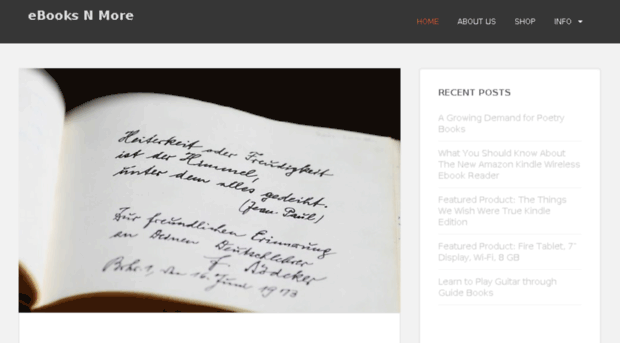 eBooks N More
HOME ABOUT US SHOP INFO
Heiterkeit oder Freudigkeit
ist der Himmel,
unter dem alles gedeiht.
(Jean Paul)
Zur freundlichen Erinnerung
an Deinen Deutschlehrer
F. Rödeker
den 16. Juni 1973
RECENT POSTS
A Growing Demand for Poetry
Books
What You Should Know About
The New Amazon Kindle Wireless
Ebook Reader
Featured Product: The Things
We Wish Were True Kindle
Edition
Featured Product: Fire Tablet, 7"
Display, Wi-Fi, 8 GB
Learn to Play Guitar through
Guide Books